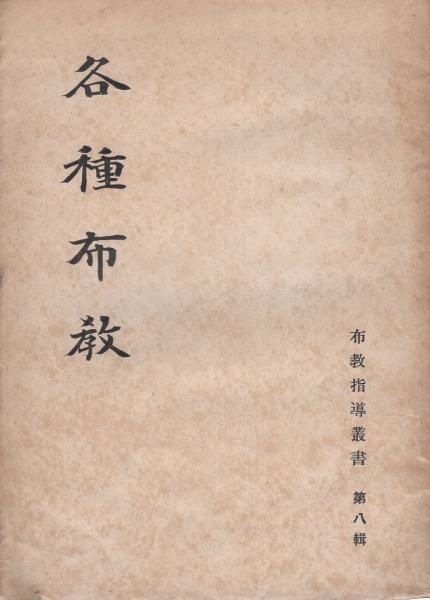 布教指導叢書 第八輯
各種布教